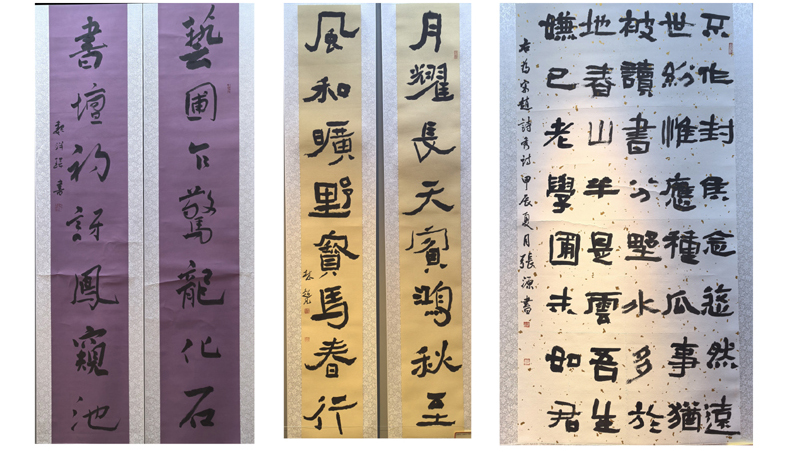 藝圃乍驚龍化石
書壇初訝鳳窺池
月耀長天賓鴻秋至
風和曠野寶馬春行
不作封侯念悠然遠
世紛惟應種瓜事猶
被讀書分埜水多於
地春山半是雲吾生
嫌已老學圃未如君
右為宋趙詩秀詩甲辰夏月張源書